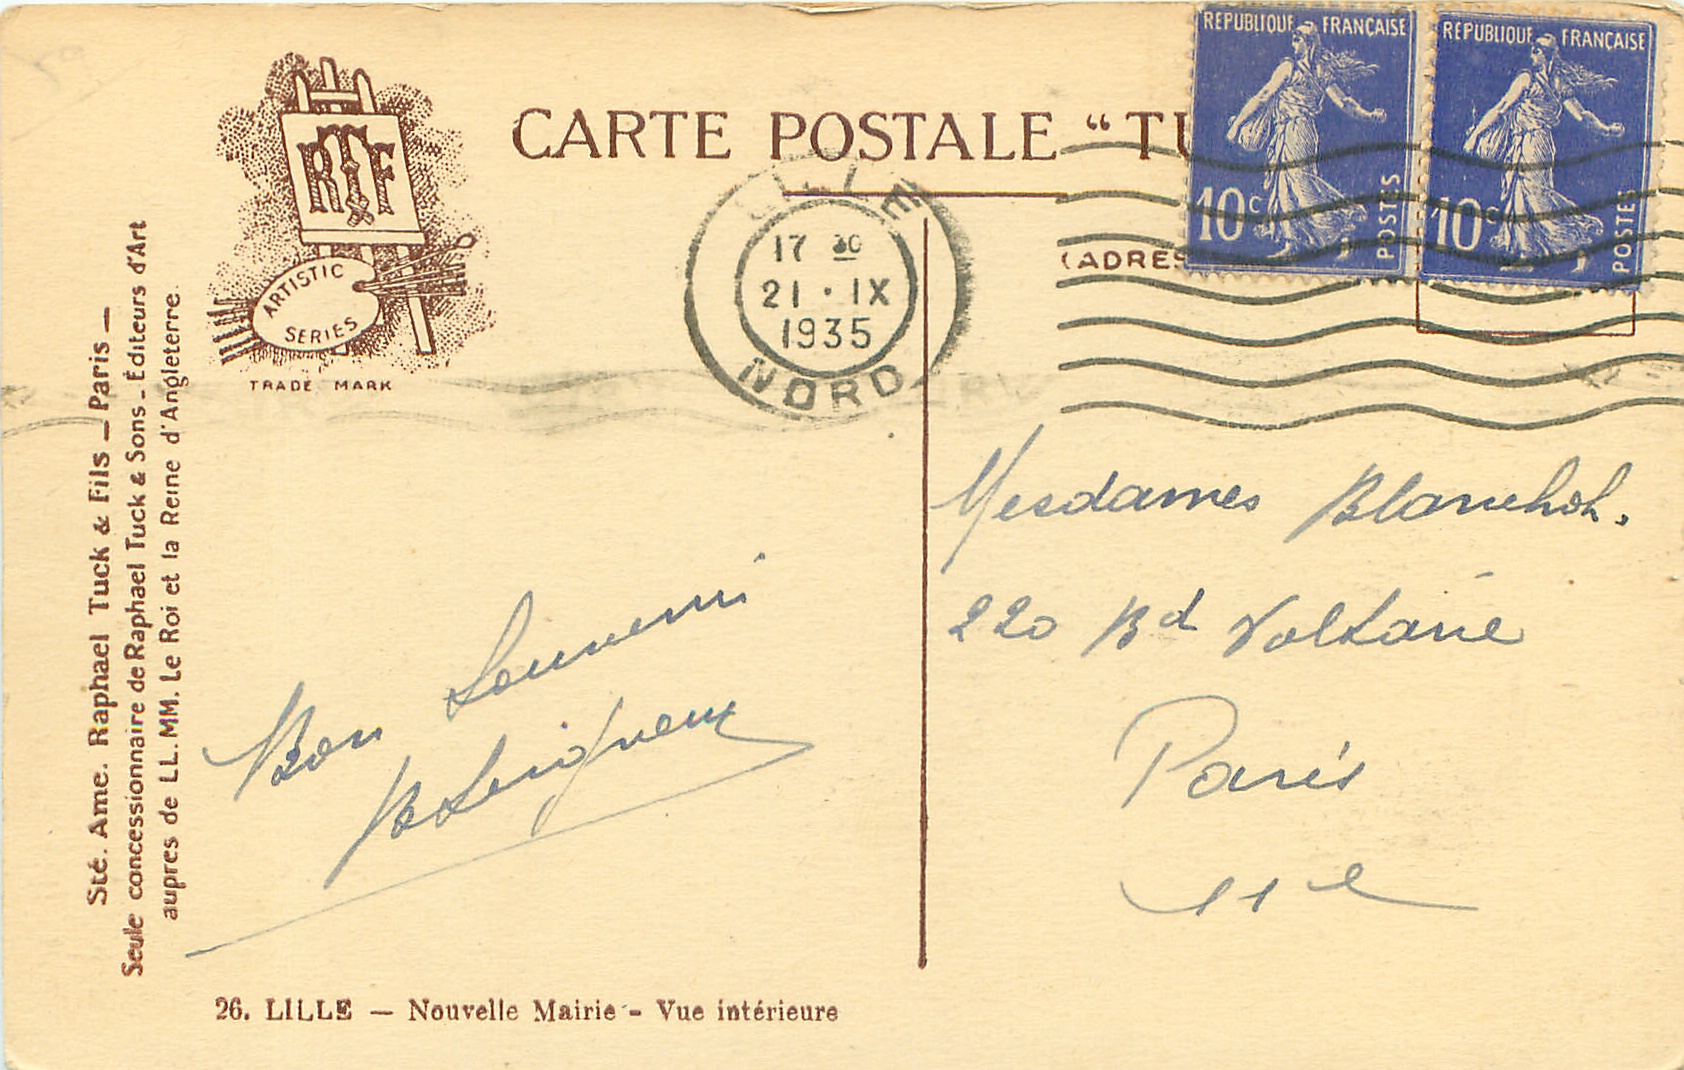 CARTE POSTALE “TU
RÉPUBLIQUE FRANÇAISE
10c
POSTES
RÉPUBLIQUE FRANÇAISE
10c
POSTES
RTF
ARTISTIC
SERIES
TRADE MARK
LILLE
17 30
21 • IX
1935
NORD
(ADRES
Sté. Ame. Raphael Tuck & Fils _ Paris _
Seule concessionnaire de Raphael Tuck & Sons _ Éditeurs d'Art
aupres de LL. MM. Le Roi et la Reine d'Angleterre.
Bon Souvenir
Mesdames
220 Bd Voltaire
Paris
11e
26. LILLE — Nouvelle Mairie - Vue intérieure